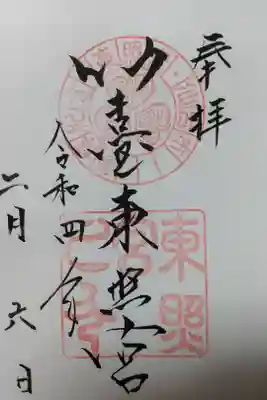 奉拝
仙臺東照宮
令和四年
二月六日
東照